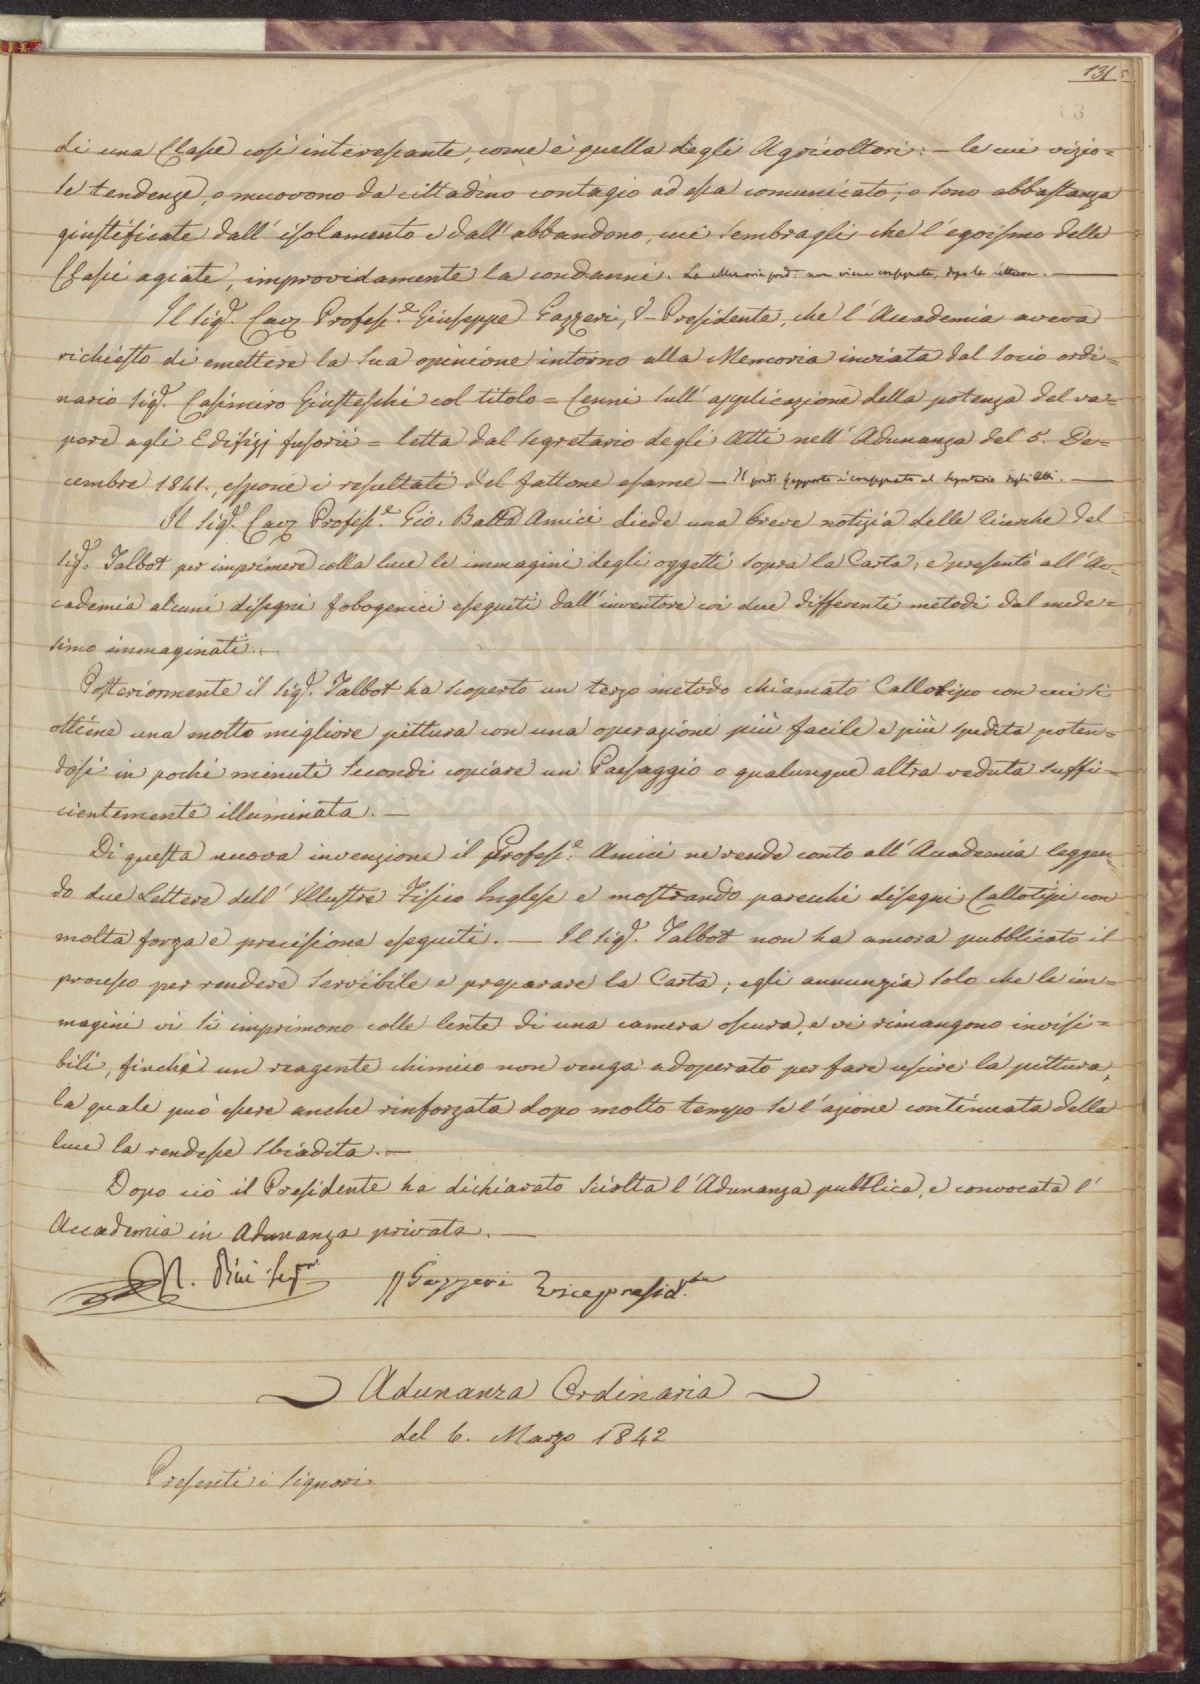 131
di una Classe così interessante, come è quella degli Agricoltori: — le cui vizio=
se tendenze, o muovono da cittadino contagio ad essa comunicato; o sono abbastanza
giustificate dall' isolamento e dall' abbandono, cui sembragli che l' egoismo delle
Classi agiate, improvidamente la condanni. La Memoria pred.ª non viene consegnata, dopo la lettura. —
Il Sig.r Cav.r Profess.e Giuseppe Gazzeri, V- Presidente, che l' Accademia aveva
richiesto di emettere la sua opinione intorno alla Memoria inviata dal Socio ordi=
nario Sig.r Casimiro Giusteschi col titolo = Cenni sull' applicazione della potenza del va=
pore agli Edifizj fusorii = letta dal Segretario degli Atti nell' Adunanza del 5. De=
cembre 1841., espone i resultati del fattone esame — Il pred.º Rapporto è consegnato al Segretario degli Atti. —
Il Sig.r Cav.r Profess.e Gio. Batta Amici diede una breve notizia delle ricerche del
Sig.r Talbot per imprimere colla luce le immagini degli oggetti sopra la Carta; e presentò all' Ac=
cademia alcuni disegni fobogenici eseguiti dall' inventore coi due differenti metodi dal mede=
simo immaginati. —
Posteriormente il Sig.r Talbot ha scoperto un terzo metodo chiamato Callotipo con cui si
ottiene una molto migliore pittura con una operazione più facile e più spedita poten=
dosi in pochi minuti secondi copiare un Paesaggio o qualunque altra veduta suffi=
cientemente illuminata. —
Di questa nuova invenzione il Profess.e Amici ne rende conto all' Accademia leggen=
do due Lettere dell' Illustre Fisico Inglese e mostrando parecchi disegni Callotipi con
molta forza e precisione eseguiti. — Il Sig.r Talbot non ha ancora pubblicato il
processo per rendere servibile e preparare la Carta; egli annunzia solo che le im=
magini vi si imprimono colle lente di una camera oscura, e vi rimangono invisi=
bili, finchè un reagente chimico non venga adoperato per fare uscire la pittura,
la quale può essere anche rinforzata dopo molto tempo se l' azione continuata della
luce la rendesse sbiadita. —
Dopo ciò il Presidente ha dichiarato sciolta l' Adunanza pubblica, e convocata l'
Accademia in Adunanza privata. —
Gazzeri Vicepresid.te
Adunanza Ordinaria
del 6. Marzo 1842
Presenti i Signori